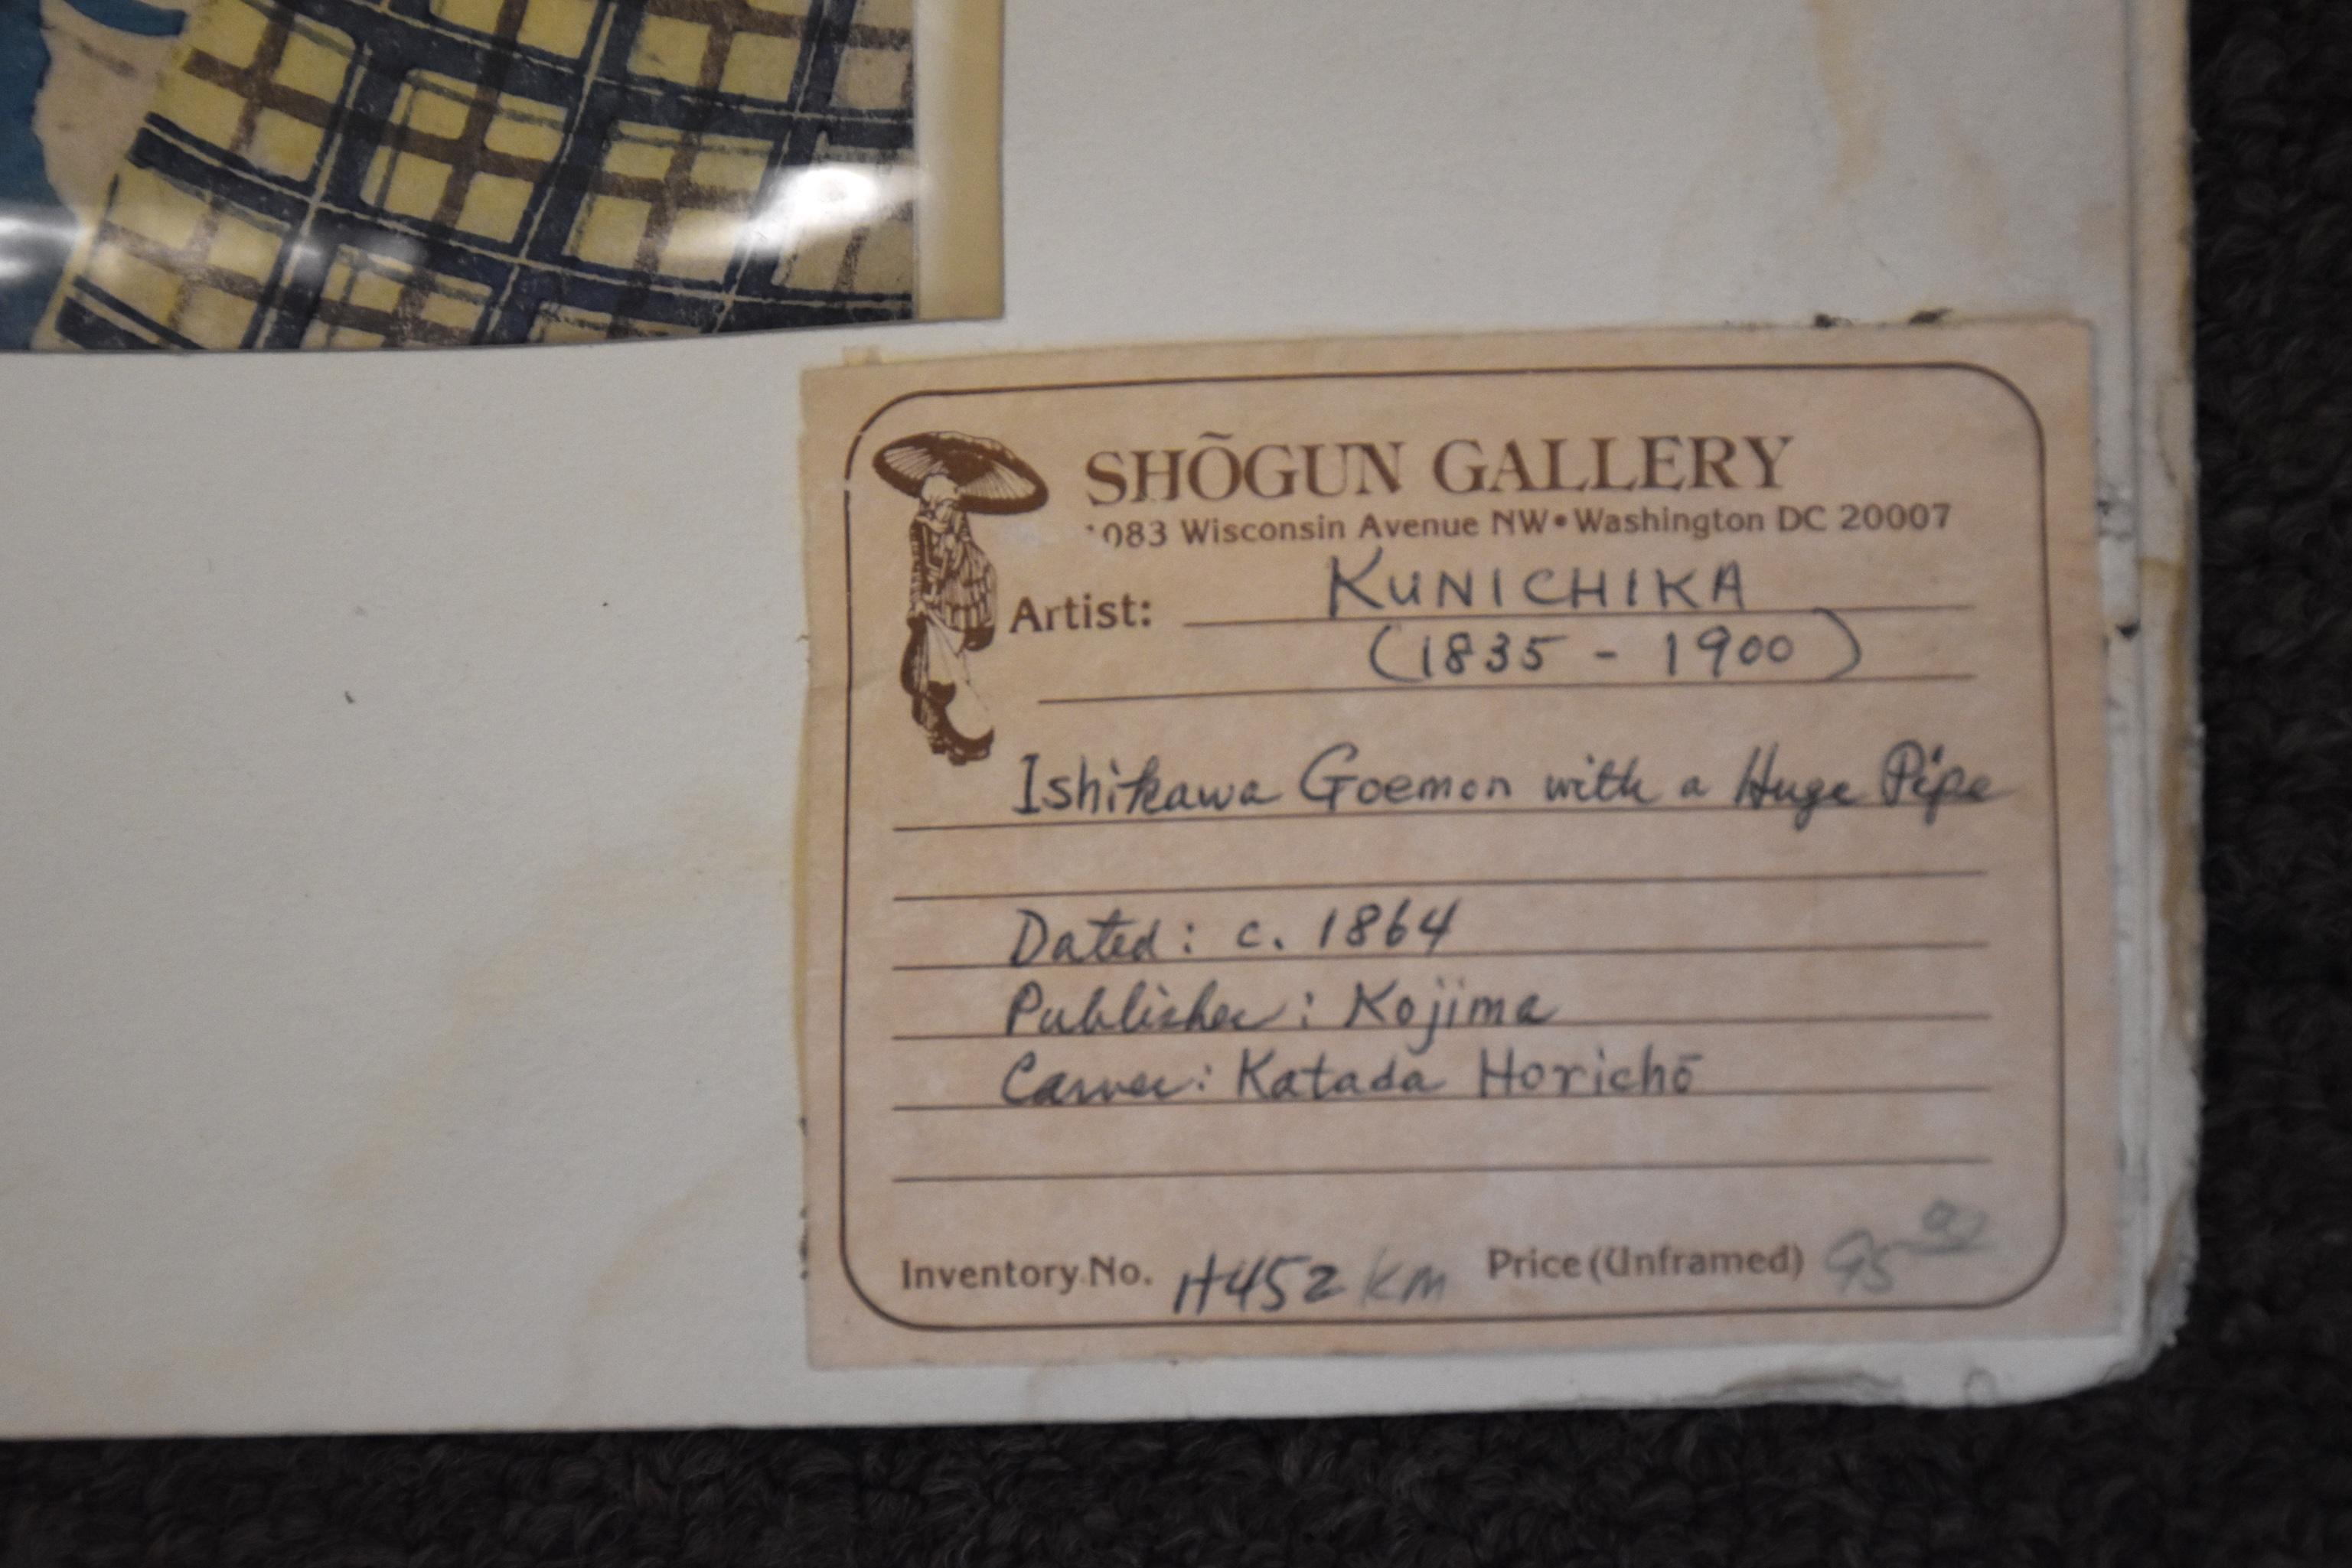 SHŌGUN GALLERY
1083 Wisconsin Avenue NW•Washington DC 20007
Artist: KUNICHIKA
(1835 - 1900)
Ishikawa Goemon with a Huge Pipe
Dated: c. 1864
Publisher: Kojima
Carver: Katada Horichō
Inventory No. H452 KM Price (Unframed) 95 00